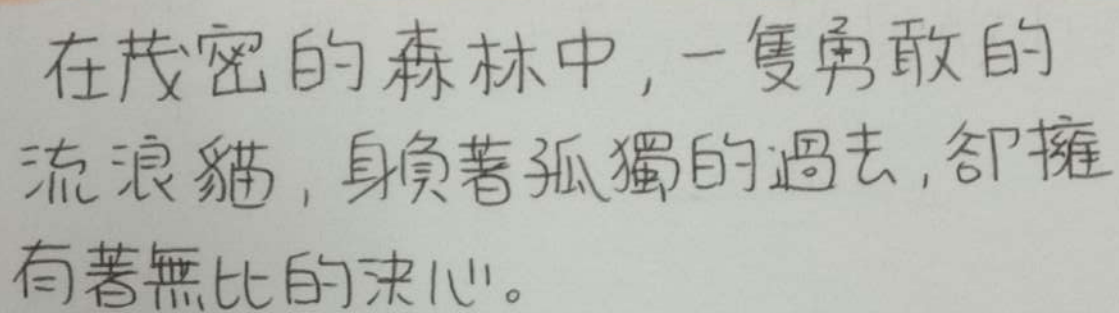 在茂密的森林中,一隻勇敢的
流浪貓,身負著孤獨的過去,卻擁
有著無比的決心。